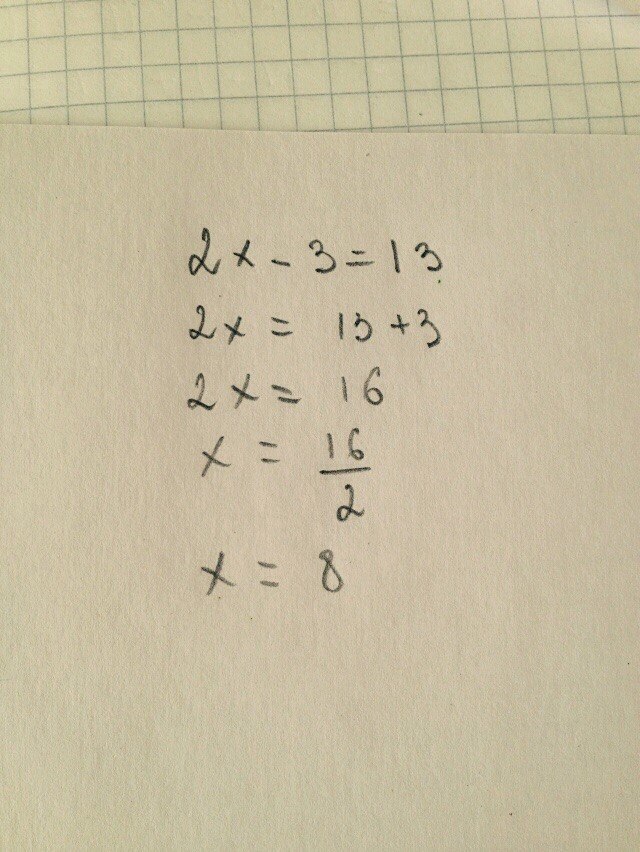 2x - 3 = 13
2x = 13 + 3
2x = 16
x = 16/2
x = 8